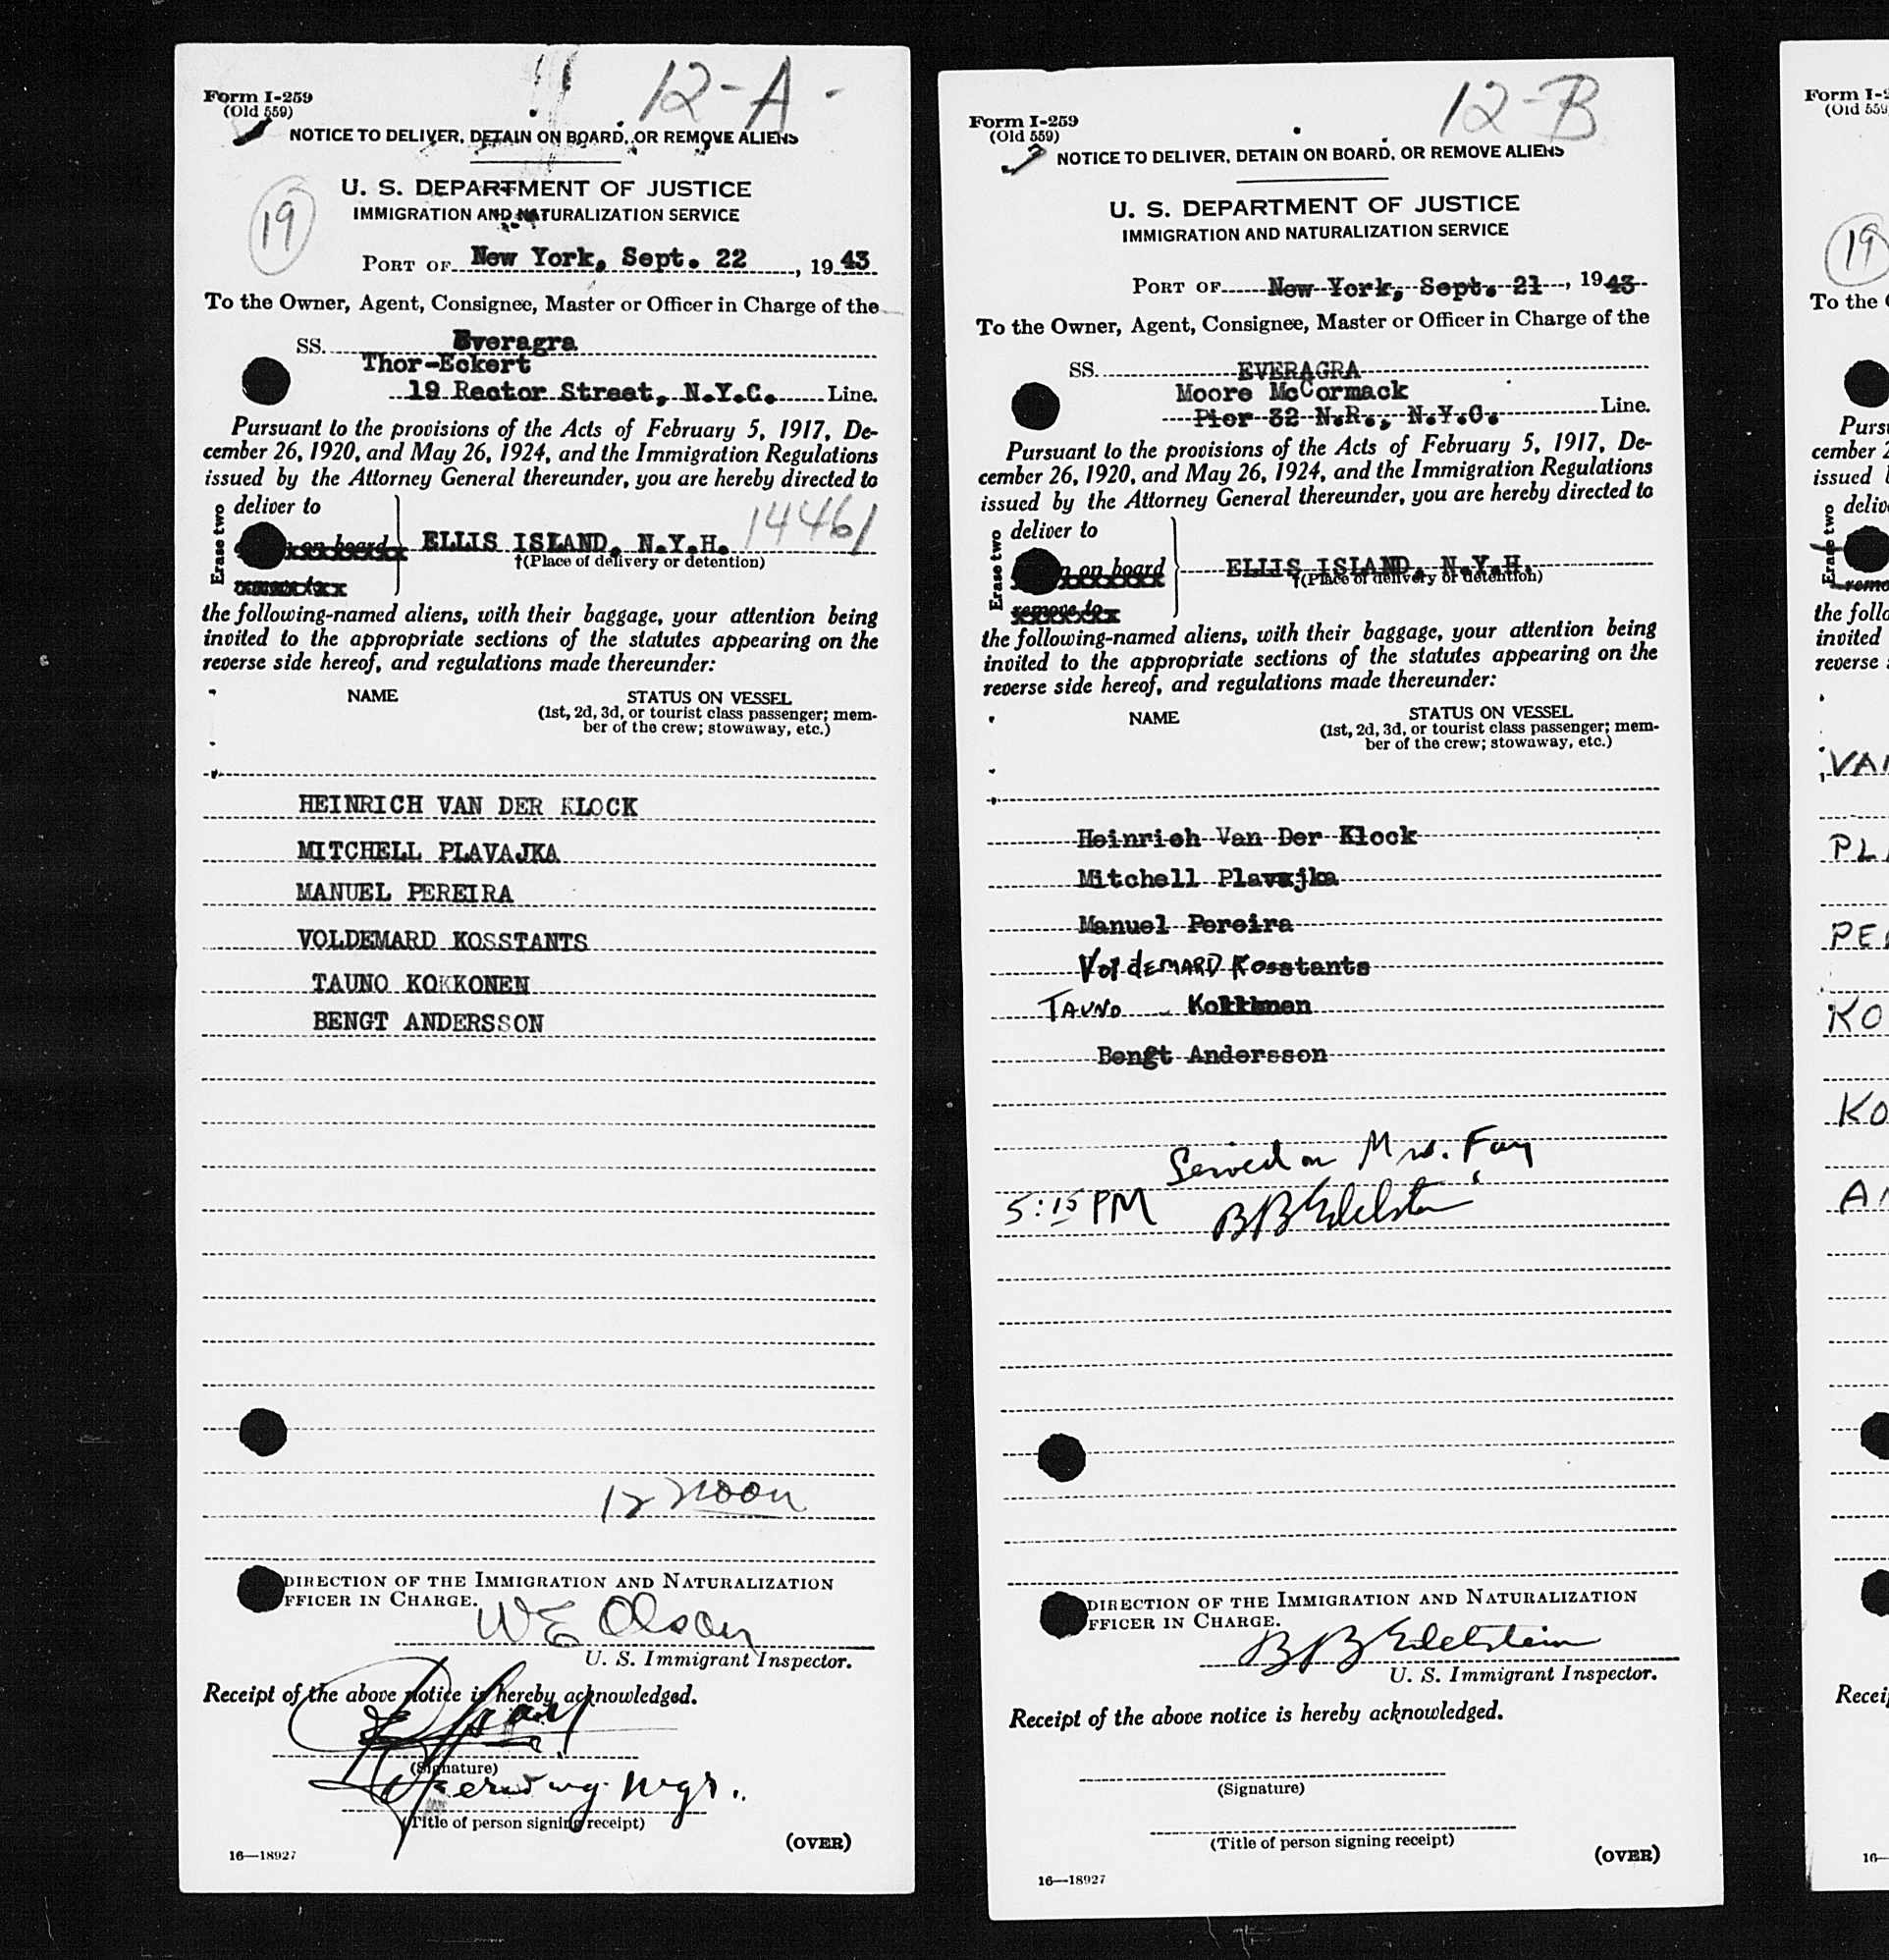 12-A-
Form I-259
(Old 559)
NOTICE TO DELIVER, DETAIN ON BOARD, OR REMOVE ALIENS
19
U. S. DEPARTMENT OF JUSTICE
IMMIGRATION AND NATURALIZATION SERVICE
PORT OF New York, Sept. 22, 1943
To the Owner, Agent, Consignee, Master or Officer in Charge of the
SS. Everagra
Thor-Eckert
19 Rector Street, N.Y.C. Line.
Pursuant to the provisions of the Acts of February 5, 1917, De-
cember 26, 1920, and May 26, 1924, and the Immigration Regulations
issued by the Attorney General thereunder, you are hereby directed to
Erase two
deliver to
14461
on board
ELLIS ISLAND, N.Y.H.
†(Place of delivery or detention)
remove to
the following-named aliens, with their baggage, your attention being
invited to the appropriate sections of the statutes appearing on the
reverse side hereof, and regulations made thereunder:
NAME STATUS ON VESSEL
(1st, 2d, 3d, or tourist class passenger; mem-
ber of the crew; stowaway, etc.)
HEINRICH VAN DER KLOCK
MITCHELL PLAVAJKA
MANUEL PEREIRA
VOLDEMARD KOSSTANTS
TAUNO KOKKONEN
BENGT ANDERSSON
12 noon
DIRECTION OF THE IMMIGRATION AND NATURALIZATION
FFICER IN CHARGE.
W E Olson
U. S. Immigrant Inspector.
Receipt of the above notice is hereby acknowledged.
(Signature)
Operating Mgr.
(Title of person signing receipt)
(OVER)
16—18927
12-B
Form I-259
(Old 559)
NOTICE TO DELIVER, DETAIN ON BOARD, OR REMOVE ALIENS
U. S. DEPARTMENT OF JUSTICE
IMMIGRATION AND NATURALIZATION SERVICE
PORT OF New York, Sept. 21, 1943
To the Owner, Agent, Consignee, Master or Officer in Charge of the
SS. EVERAGRA
Moore McCormack
Pier 32 N.R., N.Y.C. Line.
Pursuant to the provisions of the Acts of February 5, 1917, De-
cember 26, 1920, and May 26, 1924, and the Immigration Regulations
issued by the Attorney General thereunder, you are hereby directed to
Erase two
deliver to
on board
ELLIS ISLAND, N.Y.H.
†(Place of delivery or detention)
remove to
the following-named aliens, with their baggage, your attention being
invited to the appropriate sections of the statutes appearing on the
reverse side hereof, and regulations made thereunder:
NAME STATUS ON VESSEL
(1st, 2d, 3d, or tourist class passenger; mem-
ber of the crew; stowaway, etc.)
Heinrich Van Der Klock
Mitchell Plavajka
Manuel Pereira
VoldEMARD Kosstants
TAUNO Kokkonen
Bengt Andersson
Served on Mrs. Fay
5:15 PM BB Edelstein
DIRECTION OF THE IMMIGRATION AND NATURALIZATION
FFICER IN CHARGE.
BB Edelstein
U. S. Immigrant Inspector.
Receipt of the above notice is hereby acknowledged.
(Signature)
(Title of person signing receipt)
(OVER)
16—18927
Form I-2
(Old 559
19
To the
Pursu
cember 2
issued
Erase two
deliv
remo
the follo
invited
reverse
VAN
PLA
PER
KO
KO
AN
Recei
16—